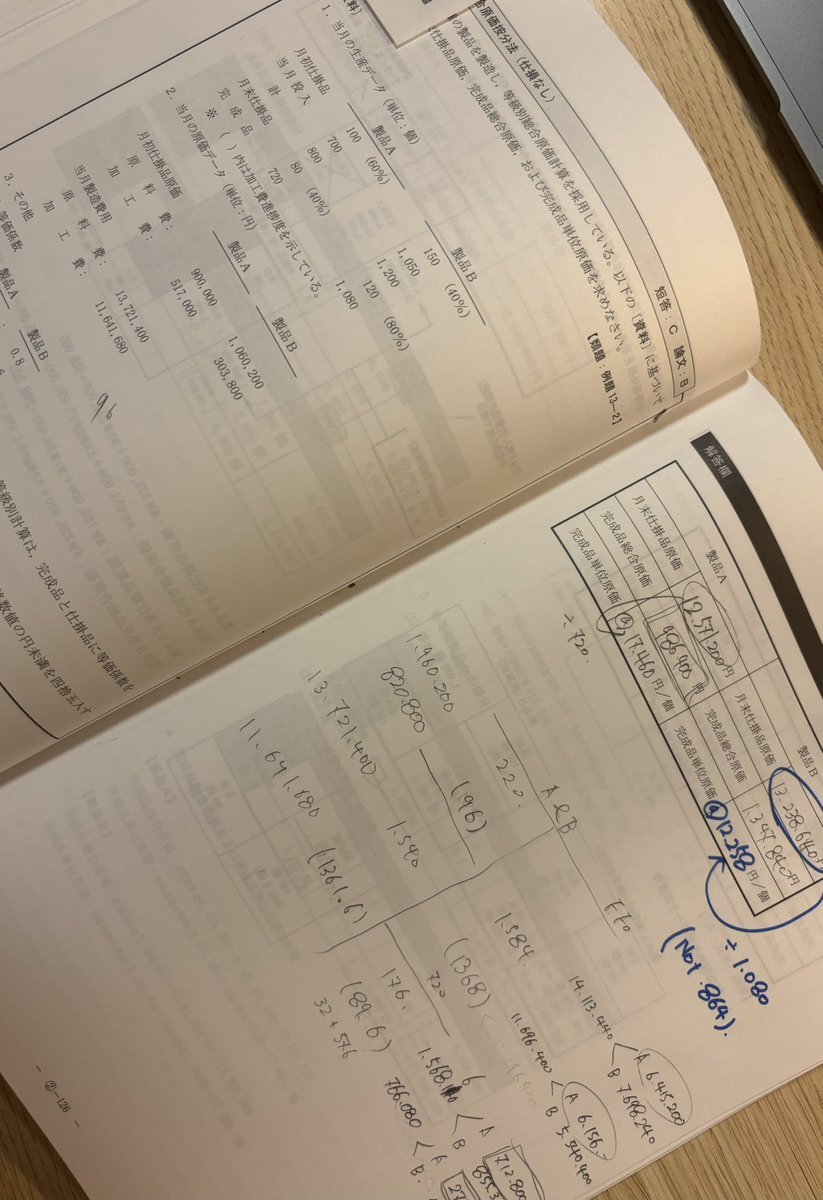 合原価按分法（仕損なし）
短答：C 論文：B
の製品を製造し、等級別総合原価計算を採用している。以下の〔資料〕に基づいて
仕掛品原価、完成品総合原価、および完成品単位原価を求めなさい。
【類題：例題13－2】
1．当月の生産データ（単位：個）
製品A 製品B
月初仕掛品 100 (60%) 150 (40%)
当月投入 700 1,050
計 800 1,200
月末仕掛品 80 (40%) 120 (80%)
完成品 720 1,080
※（ ）内は加工費進捗度を示している。
2．当月の原価データ（単位：円）
製品A 製品B
月初仕掛品原価
原料費： 900,000 1,060,200
加工費： 517,000 303,800
当月製造費用
原料費： 13,721,400
加工費： 11,641,680
3．その他
等価係数
製品A 製品B
0.8
96
等級別計算は、完成品と仕掛品に等価係数を
数値の円未満を四捨五入す
解答欄
製品A 製品B
月末仕掛品原価 12.571.200円 月末仕掛品原価 13.238.640円
完成品総合原価 986400円 完成品総合原価 1.347.840円
完成品単位原価 @17.460円/個 完成品単位原価 @12.258円/個
÷720.
÷1.080
(Not 864).
A&B.
1.960.200 220.
820.800 (196)
13.721.400 1.540
11.641.680 (1361.6)
720
864
1.584.
(1368)
176.
(89.6)
32+57.6
14.113.440 < A 6.415.200
B 7.698.240
11.696.400 < A 6.156.
B 5.540.400
A 712.800
B 855.3
766.080 < A 27
B.
－ ②-126 －